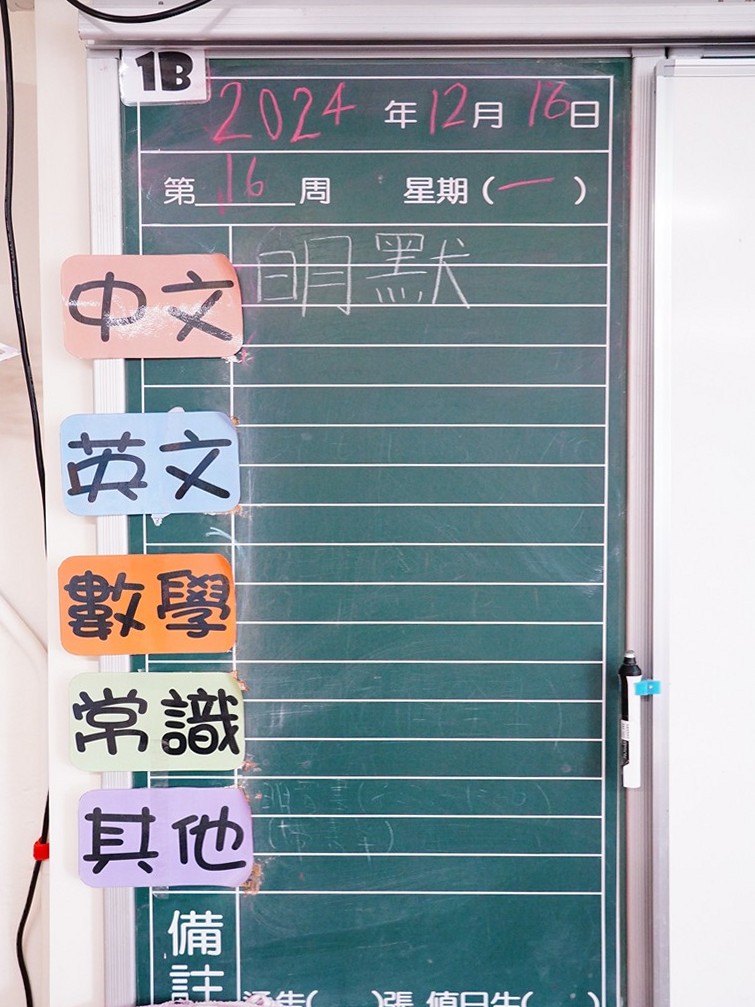 1B
2024 年 12 月 16 日
第 16 周 星期（一）
中文 明默
英文
數學
常識
其他
備註
通告( )張 值日生( )